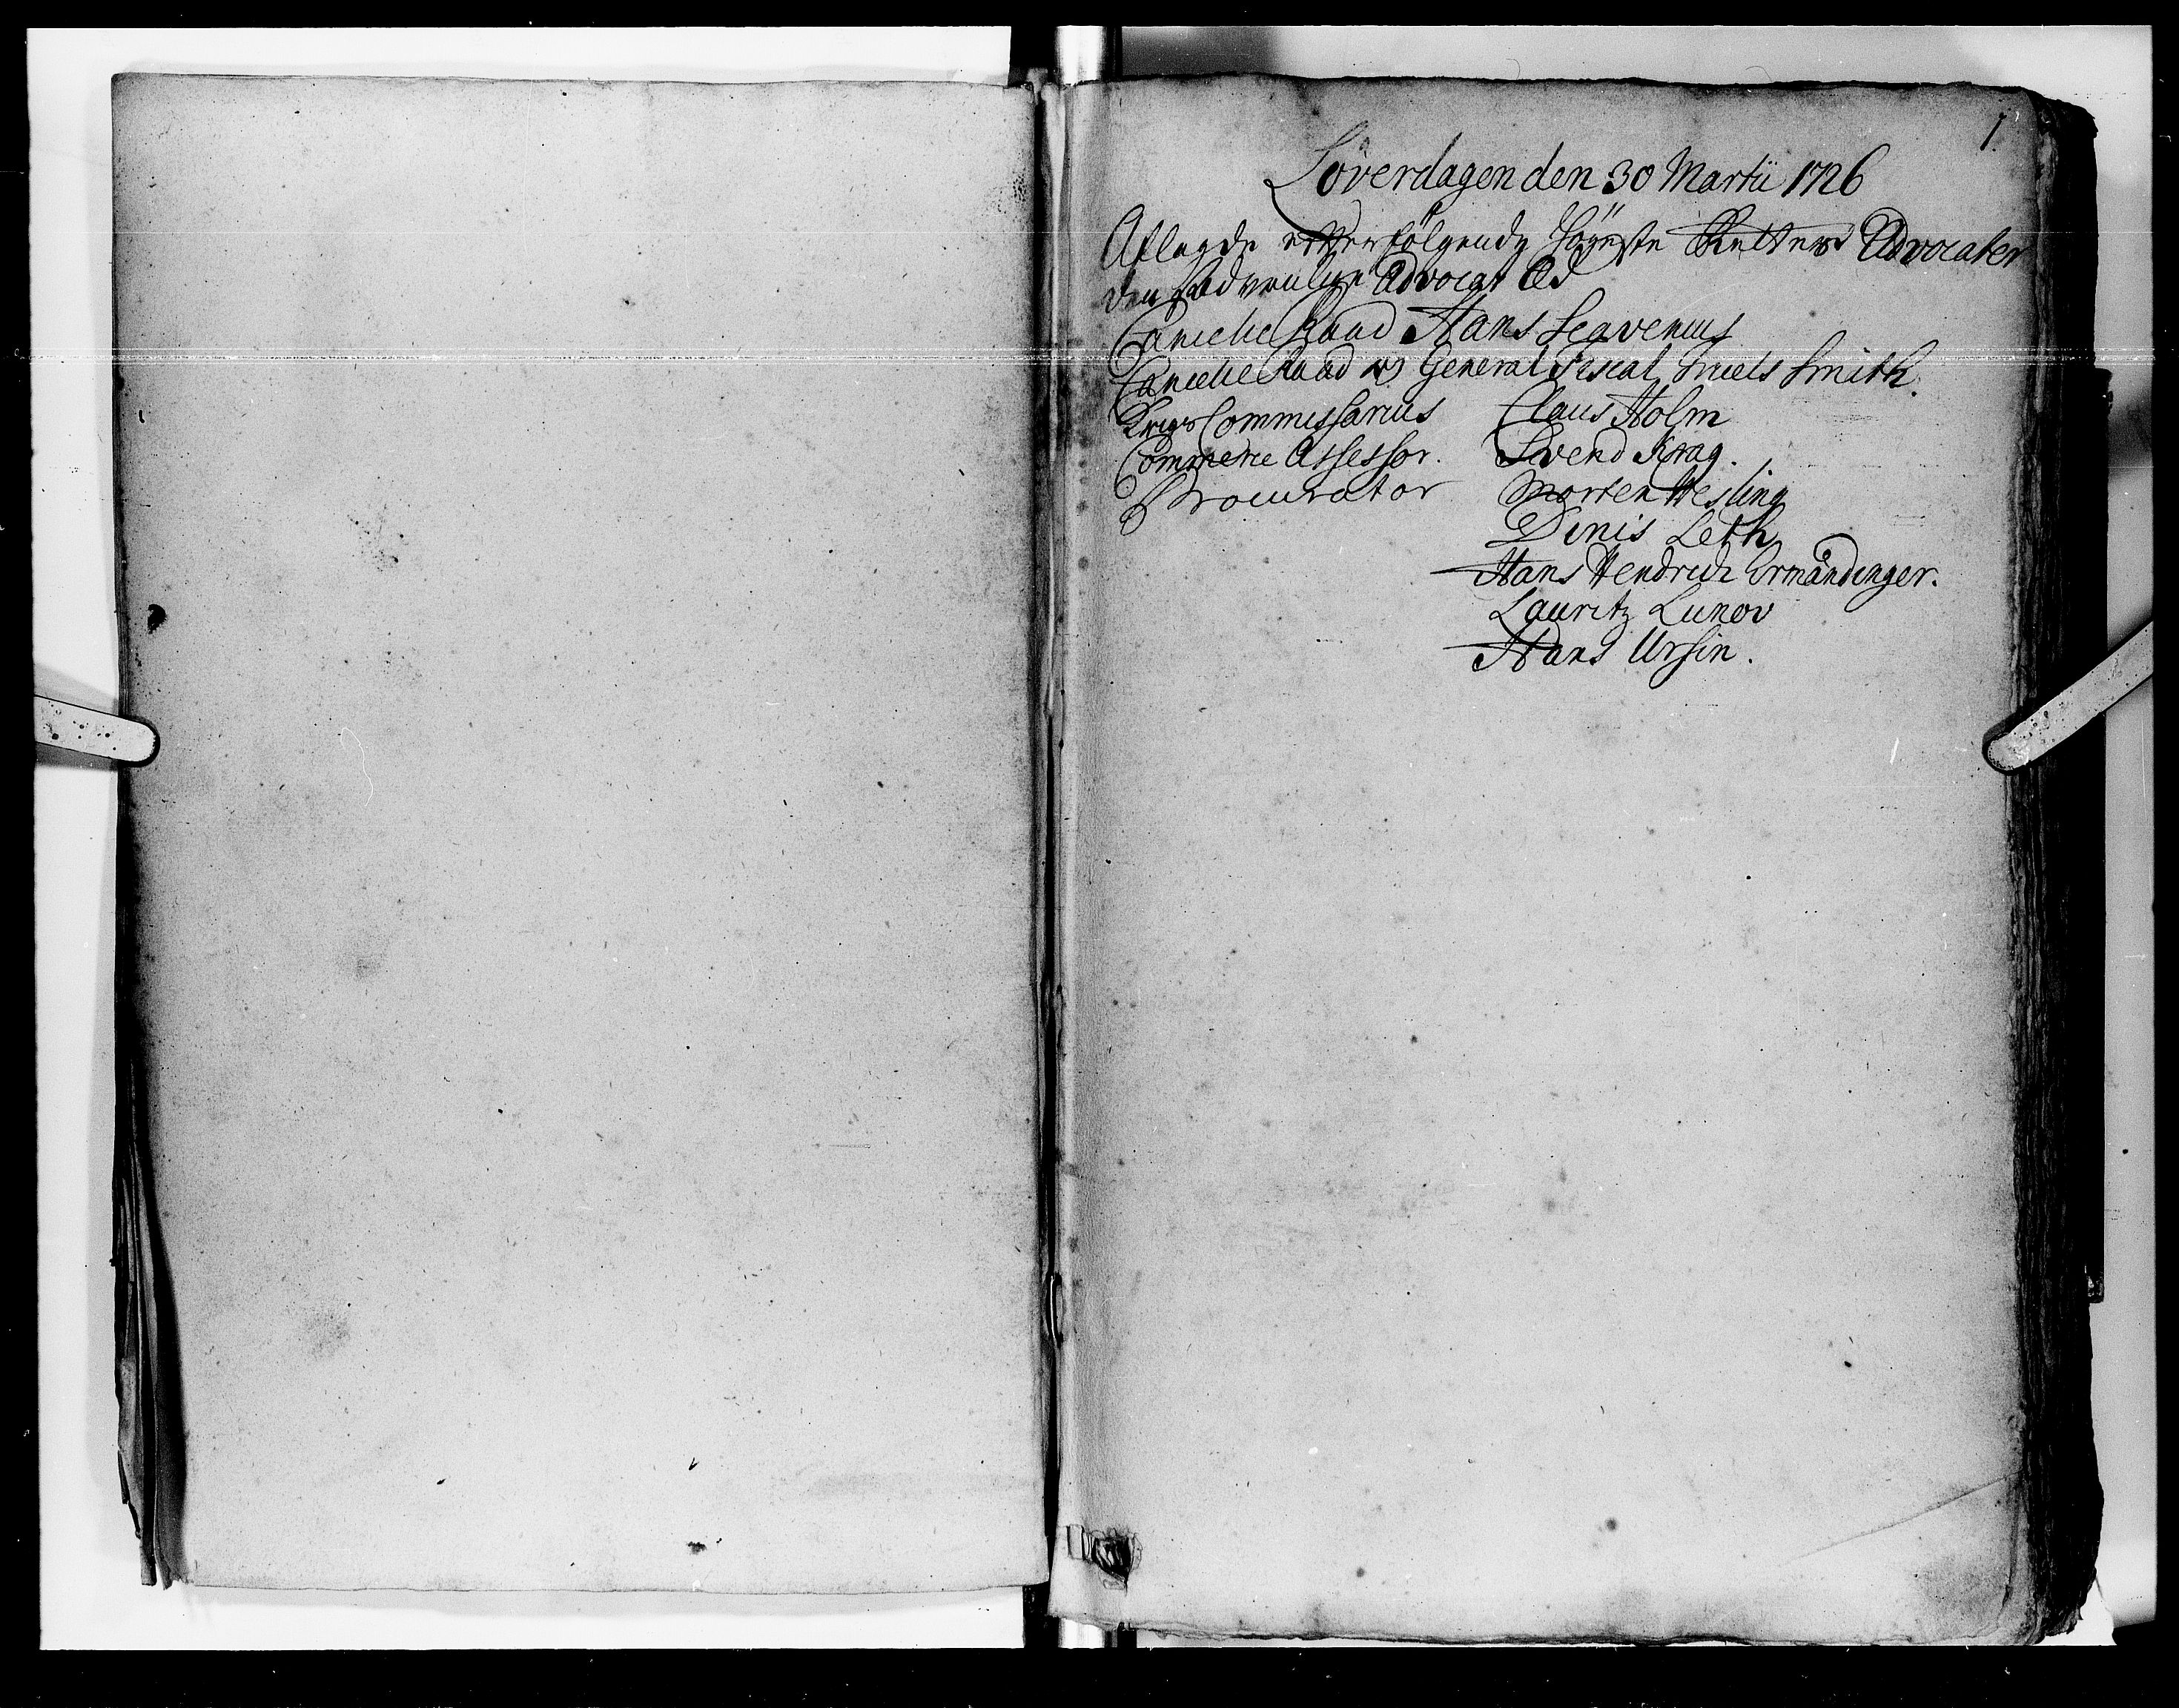 1.
Löverdagen den 30 Martii 1726
Aflagde efterfölgende höyeste Rettens Advocater
den sædvanlige Advocat Ed
Cancelie Raad Hans Scavenius
Cancelie Raad og General Fiscal Truels Smith.
Krigs Commissarius Claus Holm
Commerce Assessor. Svend Krag.
Procurator Morten Wesling
Dinis Leth
Hans Hendrich Ormåndinger.
Lauritz Lunov
Hans Ursin.